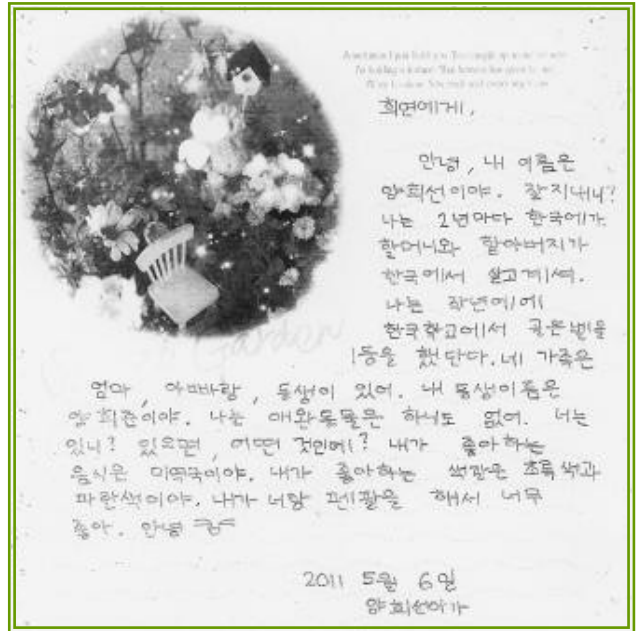 희연에게,
안녕, 내 이름은
양희선이야. 잘지내니?
나는 2년마다 한국에가.
할머니와 할아버지가
한국에서 살고계셔.
나는 작년에
한국학교에서 골든벨을
1등을 했단다. 네 가족은
엄마, 아빠랑, 동생이 있어. 내 동생이름은
양희준이야. 나는 애완동물은 하나도 없어. 너는
있니? 있으면, 어떤 것인데? 내가 좋아하는
음식은 미역국이야. 내가 좋아하는 색깔은 초록색과
파란색이야. 내가 너랑 펜팔을 해서 너무
좋아. 안녕
2011 5월 6일
양희선이가
Garden